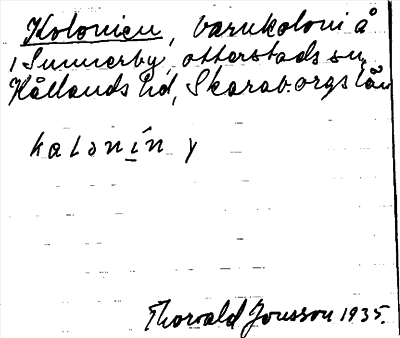 Kolonien, barnkoloni å
Sunnerby, Otterstads sn,
Kållands hd, Skaraborgs län
kalonin y
Thorvald Jonsson 1935.